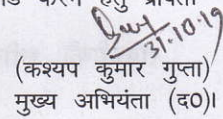 करने हेतु
31.10.19
(कश्यप कुमार गुप्ता)
मुख्य अभियंता (द०)।